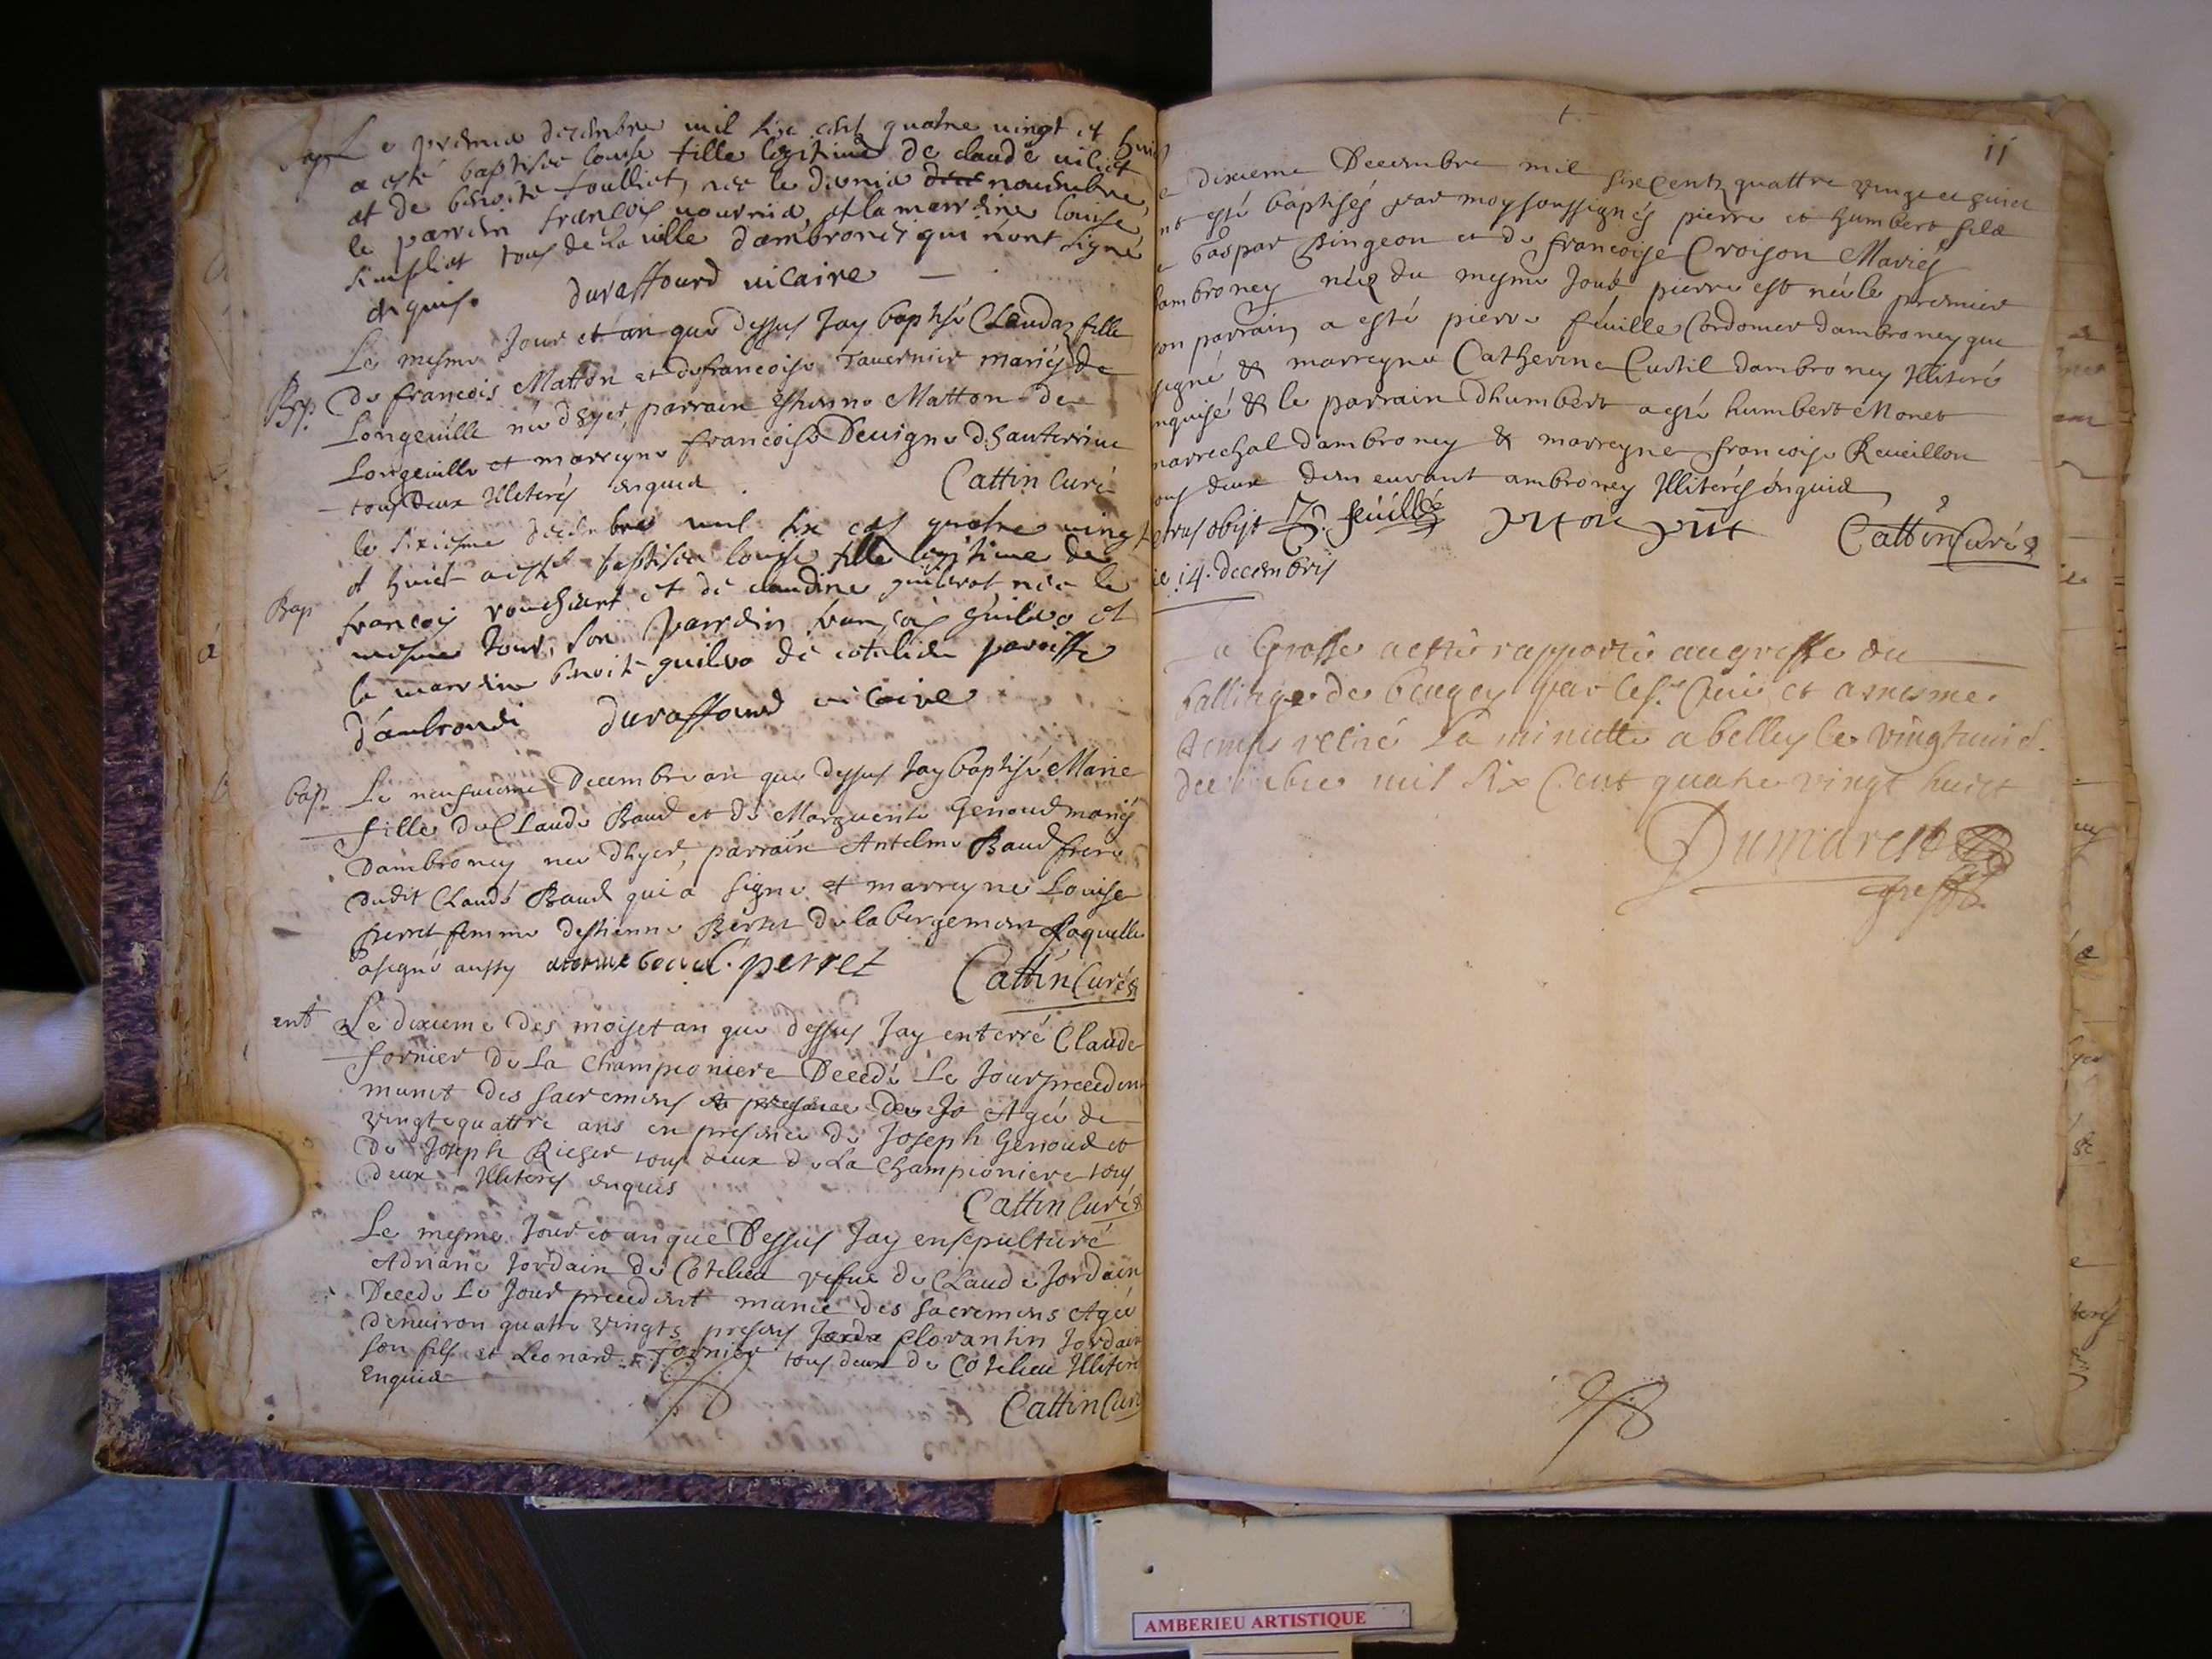 Bap Le premier decembre mil six cent quatre vingt et huict
a esté baptisée louise fille legitime de claude
et de benoite foulliet, née le dernier novembre,
le parrin françois et la marrine louise
tous de la ville dambronay qui nont signé
enquis. duraffourd vicaire
Le mesme Jour et an que dessus Jay baptisé Claudaz fille
Bap. De francois Matton et de francoise Tavernier mariés de
Longeville née dhyer, parrain Estienne Matton de
Longeville et marreyne francoise Devigne de Sauterrine
tous deux Illiterés enquis Cattin Curé
le sixiesme decembre mil six cent quatre vingt
et huict a esté baptisée louise fille legitime de
Bap françois et de claudine née le
mesme Jour, son parrin françois guilio et
la marrine benoite guilio de cotelieu paroisse
d'ambronai duraffourd vicaire
bap. Le neufvieme Decembre an que dessus Jay baptisé Marie
fille de Claude Baud et de Marguerite Genoud mariés
Dambroney née dhyer, parrain Antelme Baud frere
dudit Claude Baud qui a signé et marreyne Louise
perret femme destienne Bertet de labergement Laquelle
a signé aussy antelme baud. perret Cattin Curé
ent Le dixieme des mois et an que dessus Jay enterré Claude
fornier de La Championiere Decedé Le Jour precedent
munit des sacremens Agée de
vingt quattre ans en presence de Joseph Genoud et
de Joseph tous deux de La Championiere tous
deux Illiterés enquis Cattin Curé
Le mesme Jour et an que Dessus Jay ensepulturé
Adriane Jordain de Cotelieu vefve de Claude Jordain
Decede Le Jour precedent munie des sacremens Agée
denviron quatre vingts presens florantin Jordain
son fils et Leonard fornier tous deux de Cotelieu Illiterés
Enquis Cattin Curé
11
dixieme Decembre mil six Centz quattre vingt et huict
nt esté baptisés par moy soussignés pierre et humbert filz
Gaspar Bingeon et de francoise Croison Mariés
dambroney néz du mesme Jour pierre est né le premier
son parrain a esté pierre feuille Cordonier dambroney que
signé & marreyne Catherine Curtil dambroney Illiteré
nquise & le parrain Dhumbert a esté humbert Monet
marrechal dambroney & marreyne francoise Reveillon
ous deux demeurant ambroney Illiterés enquis
petrus obijt P. feuillé Cattin Curé
ie 14. decembris
a Grosse a esté rapportée au greffe du
balliage de beugey par le sr. Curé et a mesme
temps retiré La minutte a belley le vingthuict
decembre mil six Cent quatre vingt huict
Dumarest
greff.
AMBERIEU ARTISTIQUE